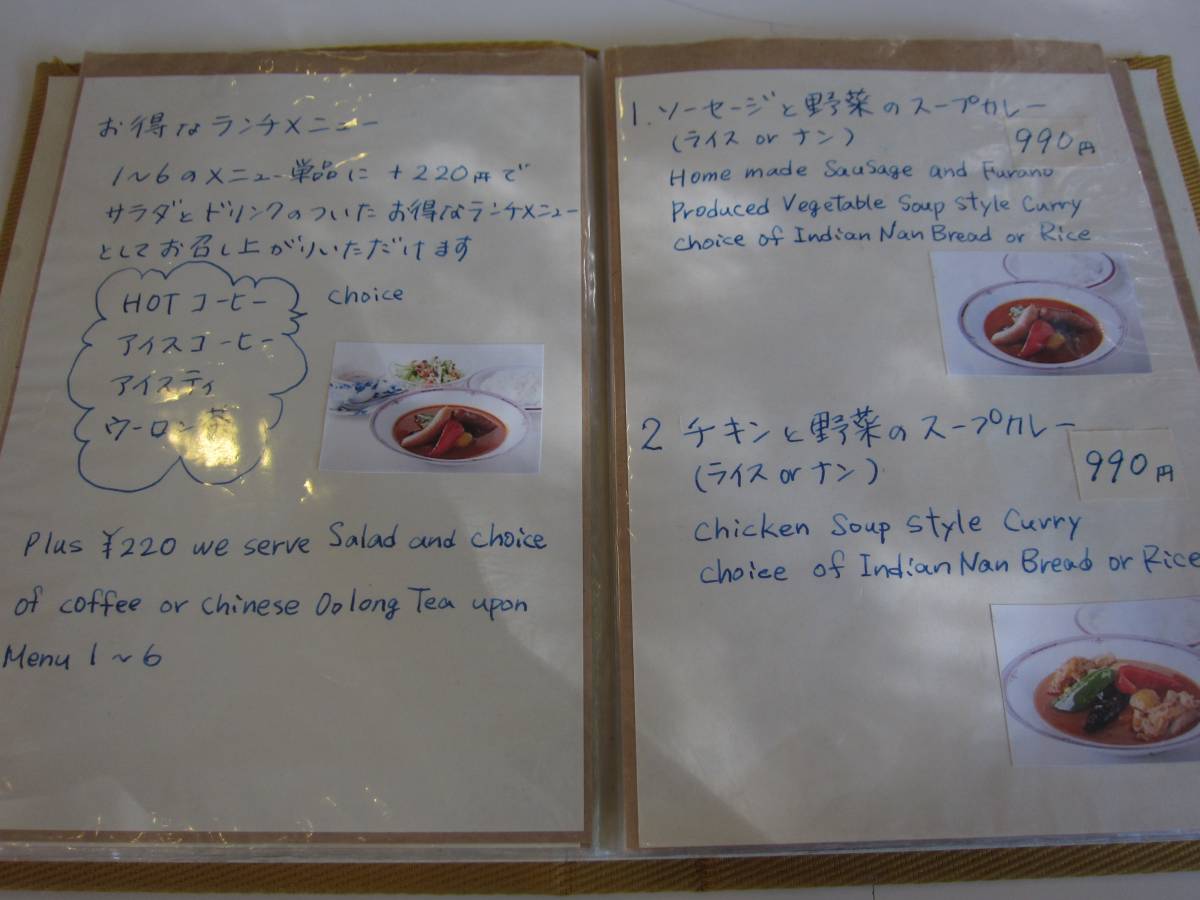 お得なランチメニュー
1～6のメニュー単品に +220円で
サラダとドリンクのついた お得なランチメニュー
としてお召し上がりいただけます
HOT コーヒー
choice
アイスコーヒー
アイスティ
ウーロン茶
Plus ¥220 we serve Salad and choice
of coffee or chinese Oolong Tea upon
Menu 1～6
1. ソーセージと野菜のスープカレー
(ライス or ナン)
990円
Home made Sausage and Furano
Produced Vegetable Soup Style Curry
choice of Indian Nan Bread or Rice
2 チキンと野菜のスープカレー
(ライス or ナン)
990円
Chicken Soup style Curry
choice of Indian Nan Bread or Rice